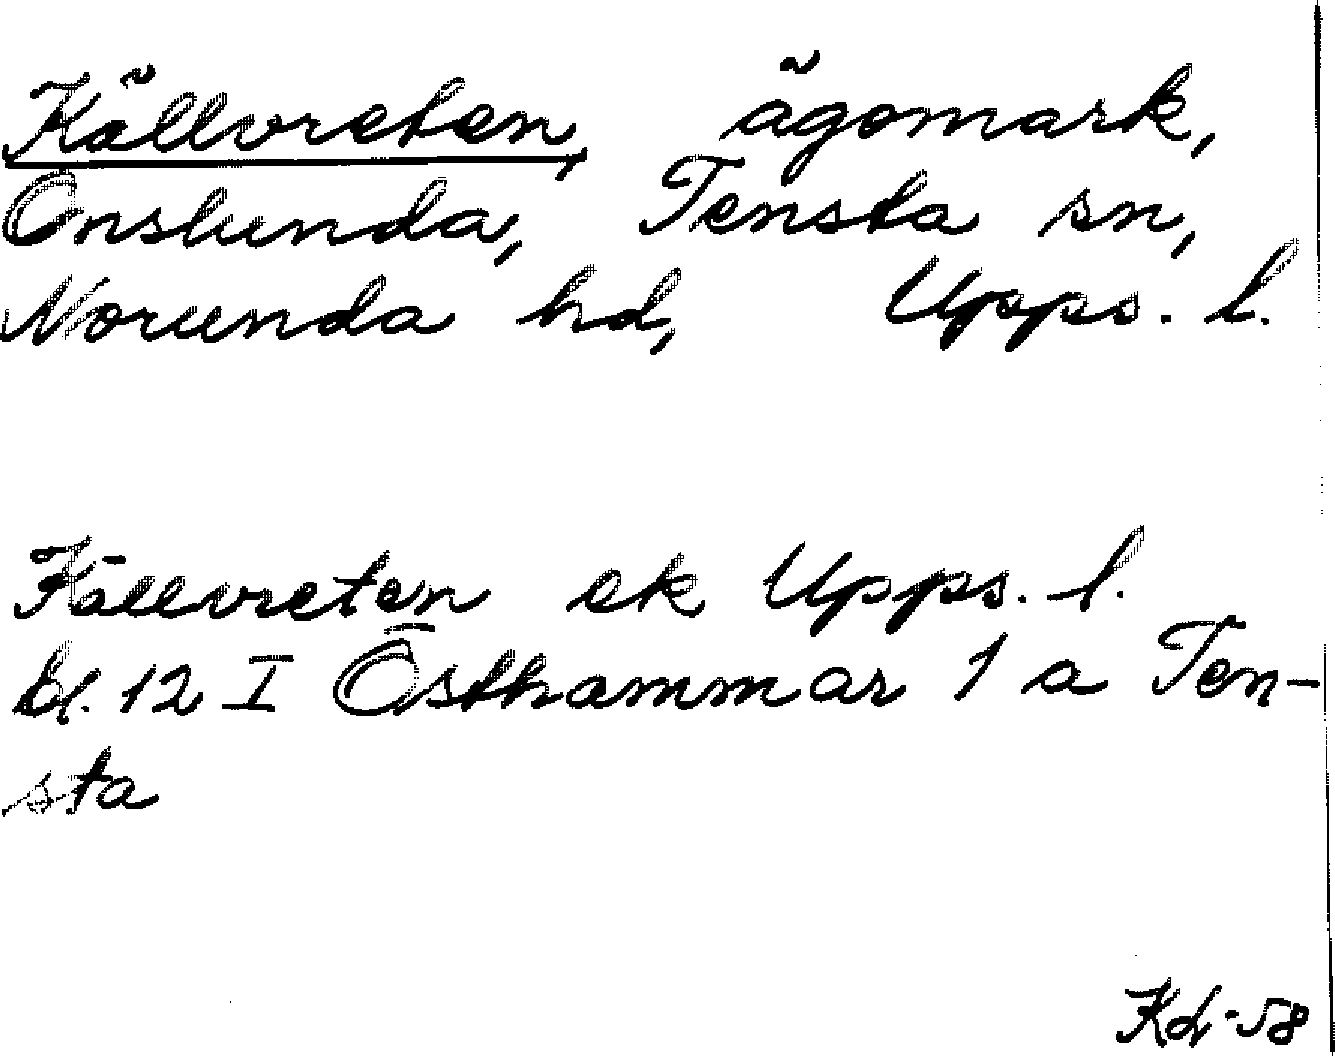 Källvreten, ägomark,
Onslunda, Tensta sn,
Norunda hd, Upps. l.
Källvreten ek Upps. l.
bl. 12 I Östhammar 1 a Ten-
sta
Kd -58